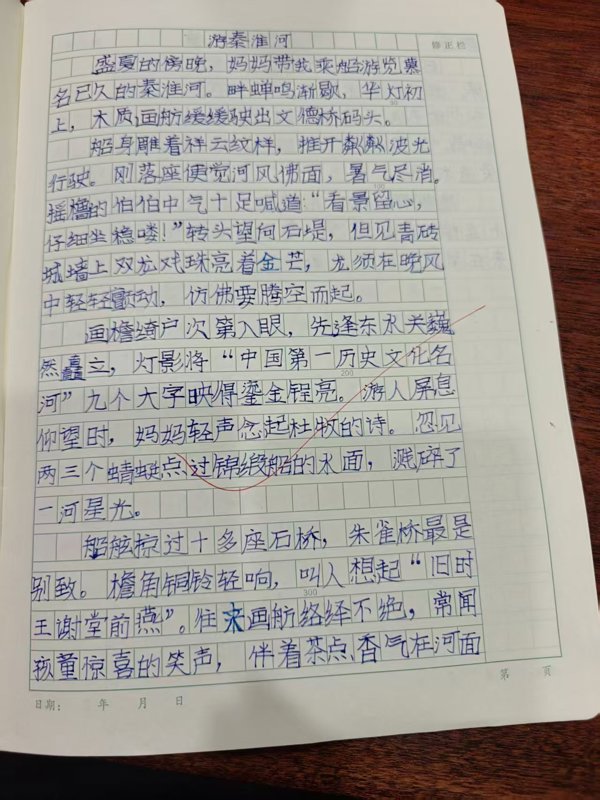 游秦淮河
修正栏
盛夏的傍晚，妈妈带我乘船游览慕
名已久的秦淮河。畔蝉鸣渐歇，华灯初
上，木质画舫缓缓驶出文德桥码头。
船身雕着祥云纹样，推开粼粼波光
行驶。刚落座便觉河风拂面，暑气尽消。
100
摇橹的伯伯中气十足喊道：“看景留心，
仔细坐稳喽！”转头望向石堤，但见青砖
城墙上双龙戏珠亮着金芒，龙须在晚风
中轻轻颤动，仿佛要腾空而起。
画檐绮户次第入眼，先逢东水关巍
然矗立，灯影将“中国第一历史文化名
200
河”九个大字映得鎏金锃亮。游人屏息
仰望时，妈妈轻声念起杜牧的诗。忽见
两三个蜻蜓点过锦缎船的水面，溅碎了
一河星光。
船舷掠过十多座石桥，朱雀桥最是
别致。檐角铜铃轻响，叫人想起“旧时
300
王谢堂前燕”。往来画舫络绎不绝，常闻
孩童惊喜的笑声，伴着茶点香气在河面
第 页
日期： 年 月 日